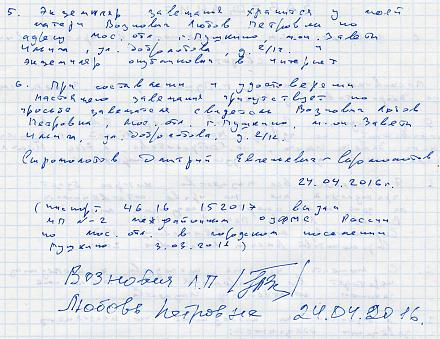 5. Экземпляр завещания хранится у моей
матери Вознобия Любовь Петровны по
адресу мос. отл. г. Пушкино, м-он. Заветы
Ильича, ул. Добролюбова, д. 2/12. и
экземпляр опубликован в интернет
6. При составлении и удостоверении
настоящего завещания присутствует по
просьбе завещателя свидетель Вознобия Любовь
Петровна, мос. отл. г. Пушкино, м-он. Заветы
Ильича, ул. Добролюбова. д. 2/12.
Сыромолотов Дмитрий Евгеньевич
24.04.2016 г.
(паспорт 46 16 152017 выдан
ТП №-2 межрайонный ОУФМС России
по мос. отл. в городском поселении
Пушкино 3.03.2011)
Вознобия Л.П
Любовь Петровна 24.04.2016.